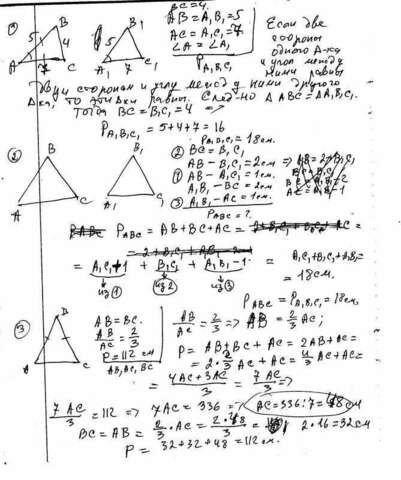 ①
B
5
4
7
A
C
B₁
5
A₁
7
C₁
BC=4.
AB=A₁B₁=5
AC=A₁C₁=7
∠A=∠A₁
P A₁B₁C₁
Если две
стороны
одного Δ-ка
и угол между
ними равны
двум сторонам и углу между ними другого
Δка, то эти Δки равны. След-но ΔABC=ΔA₁B₁C₁.
Тогда BC=B₁C₁=4 ⇒
P A₁B₁C₁ = 5+4+7=16
②
B
A
C
B₁
A₁
C₁
P A₁B₁C₁=18см.
② BC=B₁C₁
AB-B₁C₁=2см ⇒
① AB-A₁C₁=1см.
A₁B₁-BC=2см
③ A₁B₁-AC=1см.
P ABC=?
P ABC=AB+BC+AC=
= A₁C₁+1 + B₁C₁ + A₁B₁-1 = A₁C₁+B₁C₁+A₁B₁=
из① из② из③ = 18см.
P ABC = P A₁B₁C₁=18см
③
B
A
C
AB=BC.
AB/AC=2/3
P=112 см
AB, AC, BC
AB/AC=2/3 ⇒ AB=2/3 AC;
P=AB+BC+AC=2AB+AC=
=2·2/3 AC+AC=4/3 AC+AC=
=(4AC+3AC)/3=7AC/3 ⇒
7AC/3=112 ⇒ 7AC=336 ⇒ AC=336:7=48см
BC=AB=2/3·AC=2·48/3= 2·16=32см
P=32+32+48=112см.